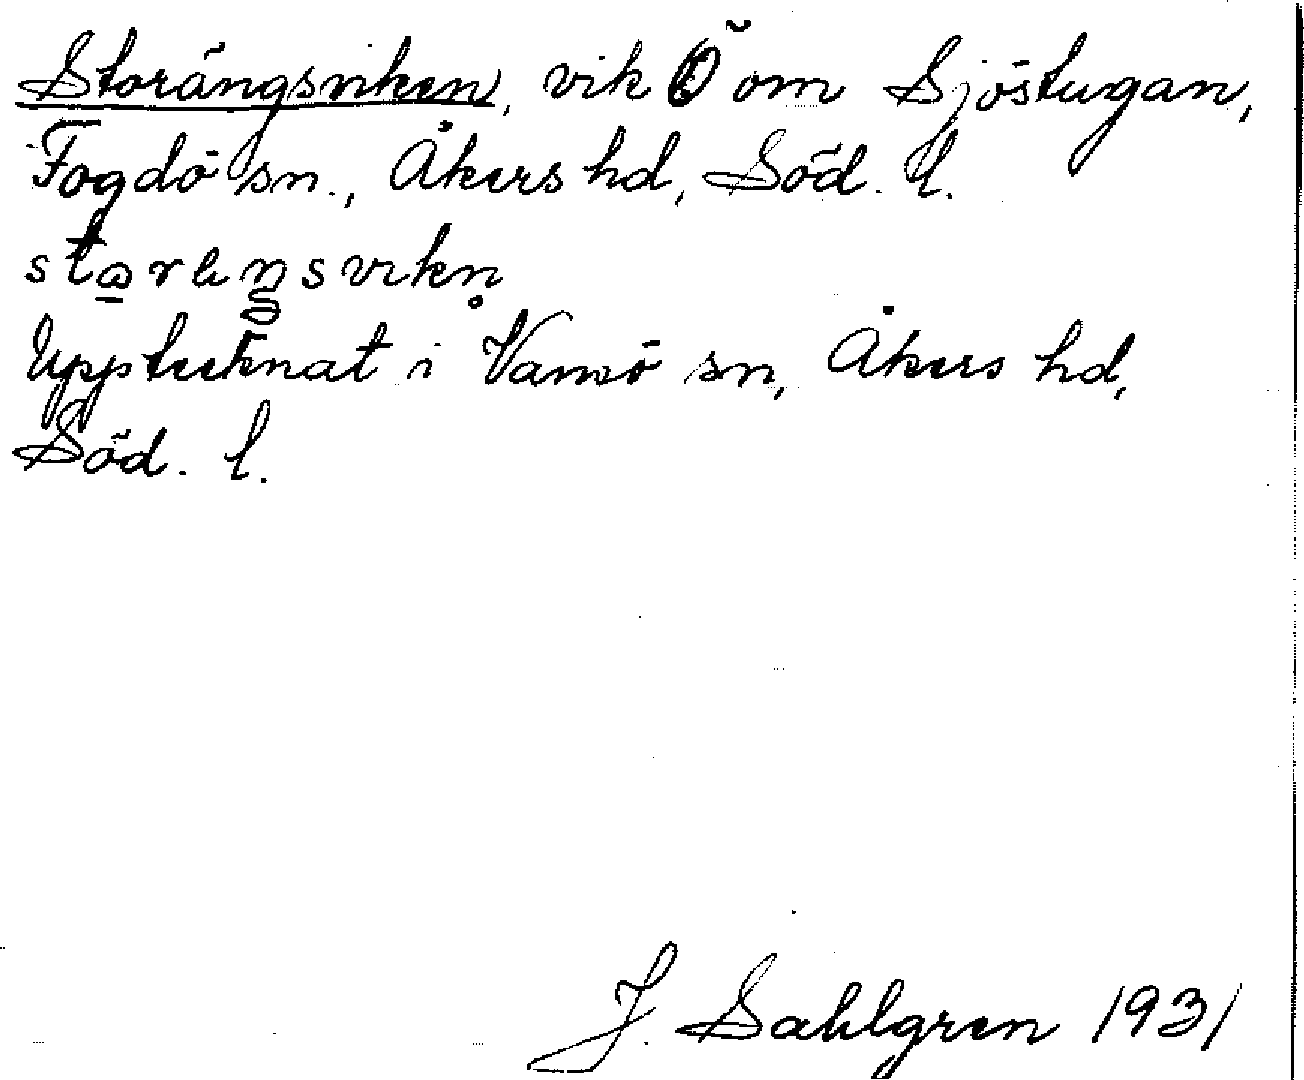 Storängsviken, vik Ö om Sjöstugan,
Fogdö sn., Åkers hd, Söd. l.
Upptecknat i Vansö sn, Åkers hd,
Söd. l.
J. Sahlgren 1931